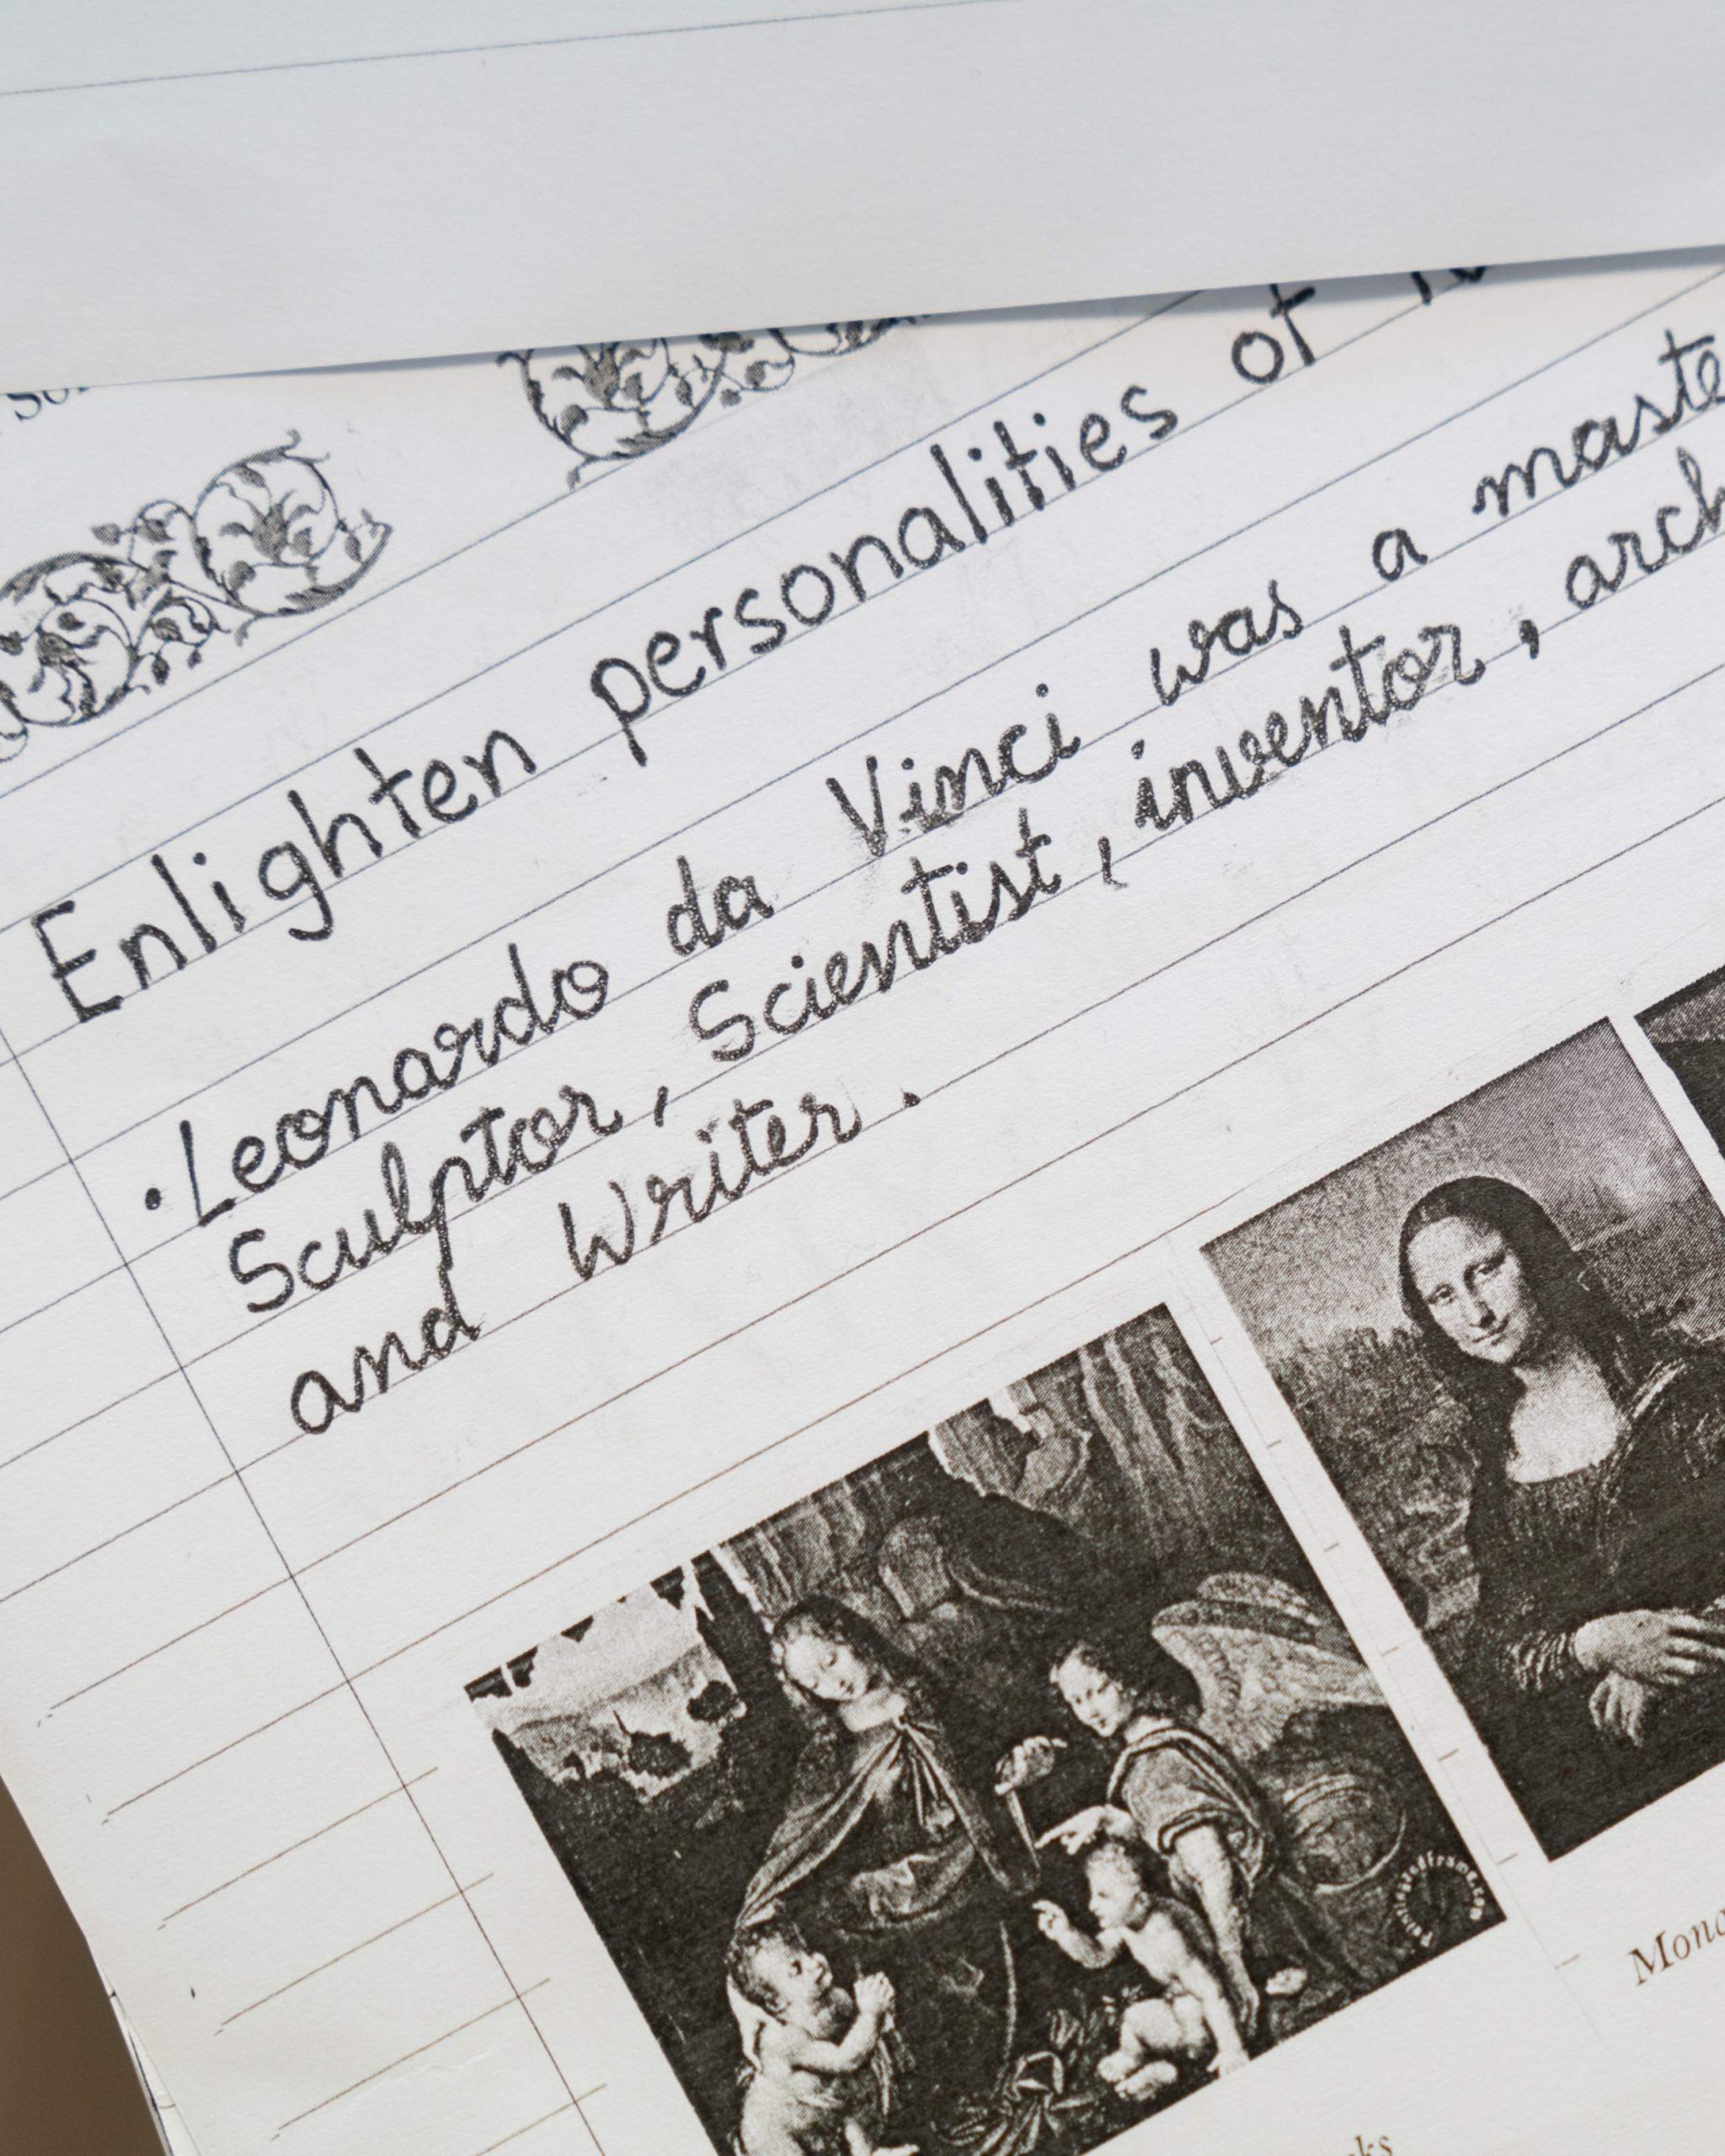 Enlighten personalities of
• Leonardo da Vinci was a
Sculptor, Scientist, inventor,
and Writer.